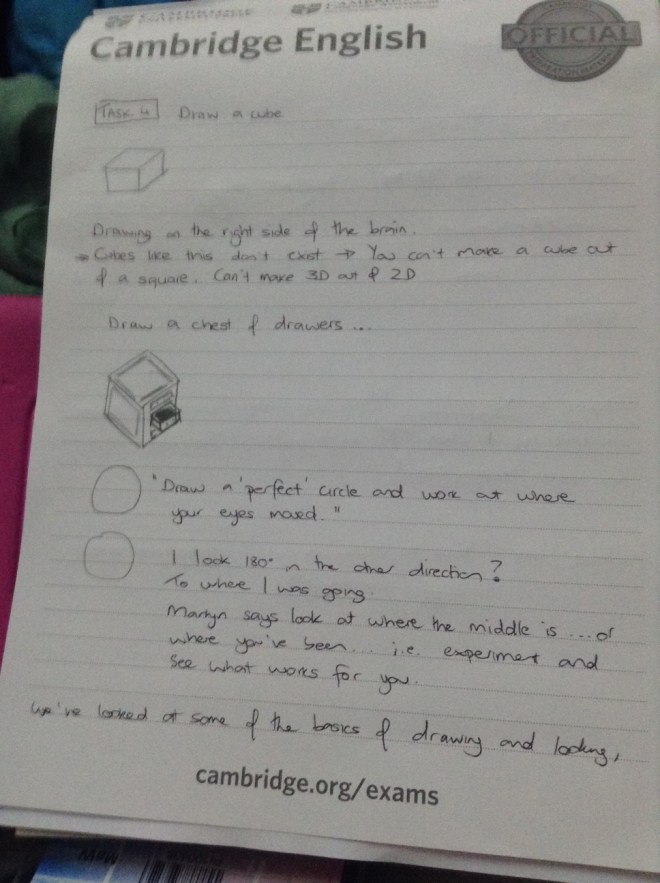 Cambridge English
OFFICIAL
TASK 4 Draw a cube
Drawing on the right side of the brain.
→ Cubes like this don't exist → You can't make a cube out
of a square. Can't make 3D out of 2D
Draw a chest of drawers ...
"Draw a 'perfect' circle and work out where
your eyes moved."
I look 180° in the other direction?
To where I was going.
Martyn says look at where the middle is ... or
where you've been ... i.e. experiment and
see what works for you.
We've looked at some of the basics of drawing and looking,
cambridge.org/exams